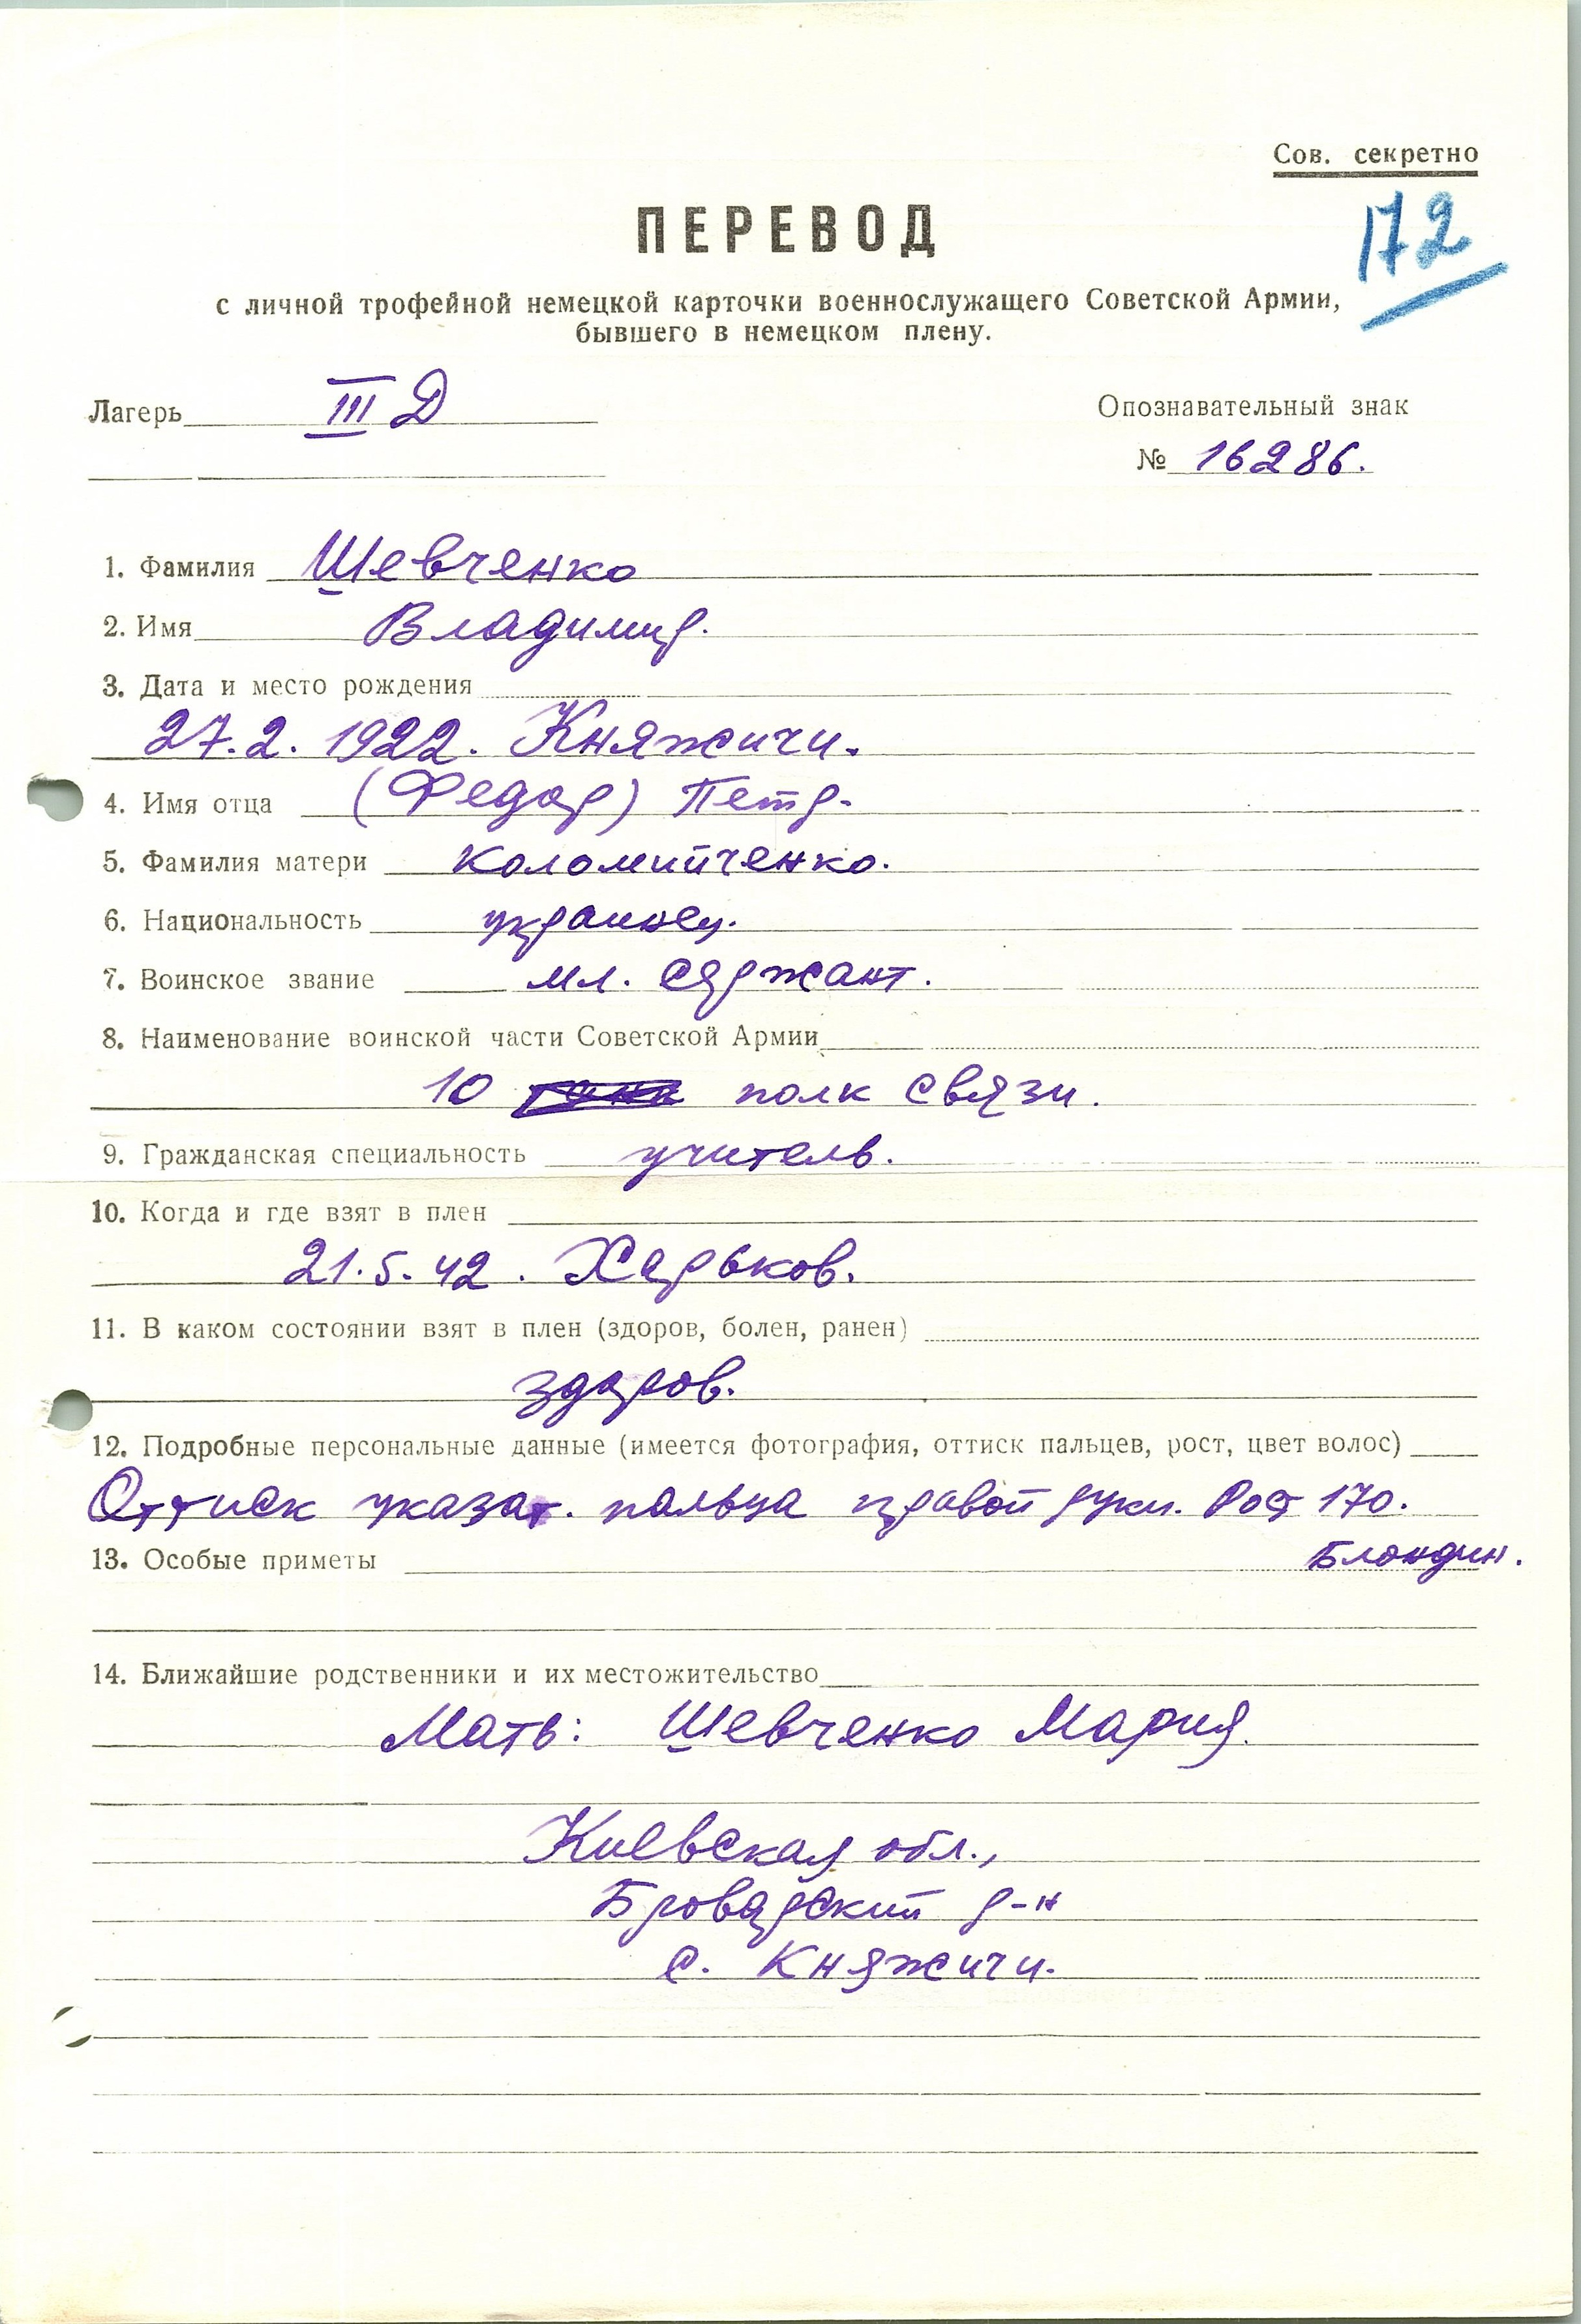 Сов. секретно
172
ПЕРЕВОД
с личной трофейной немецкой карточки военнослужащего Советской Армии,
бывшего в немецком плену.
Лагерь III Д
Опознавательный знак
№ 16286.
1. Фамилия Шевченко
2. Имя Владимир.
3. Дата и место рождения
27.2.1922. Княжичи.
4. Имя отца (Федор) Петр.
5. Фамилия матери Коломийченко.
6. Национальность украинец.
7. Воинское звание мл. сержант.
8. Наименование воинской части Советской Армии
10 полк связи.
9. Гражданская специальность учитель.
10. Когда и где взят в плен
21.5.42. Харьков.
11. В каком состоянии взят в плен (здоров, болен, ранен)
здоров.
12. Подробные персональные данные (имеется фотография, оттиск пальцев, рост, цвет волос)
Оттиск указат. пальца правой руки. Рост 170.
Блондин.
13. Особые приметы
14. Ближайшие родственники и их местожительство
Мать: Шевченко Мария.
Киевская обл.,
Броварский р-н
с. Княжичи.